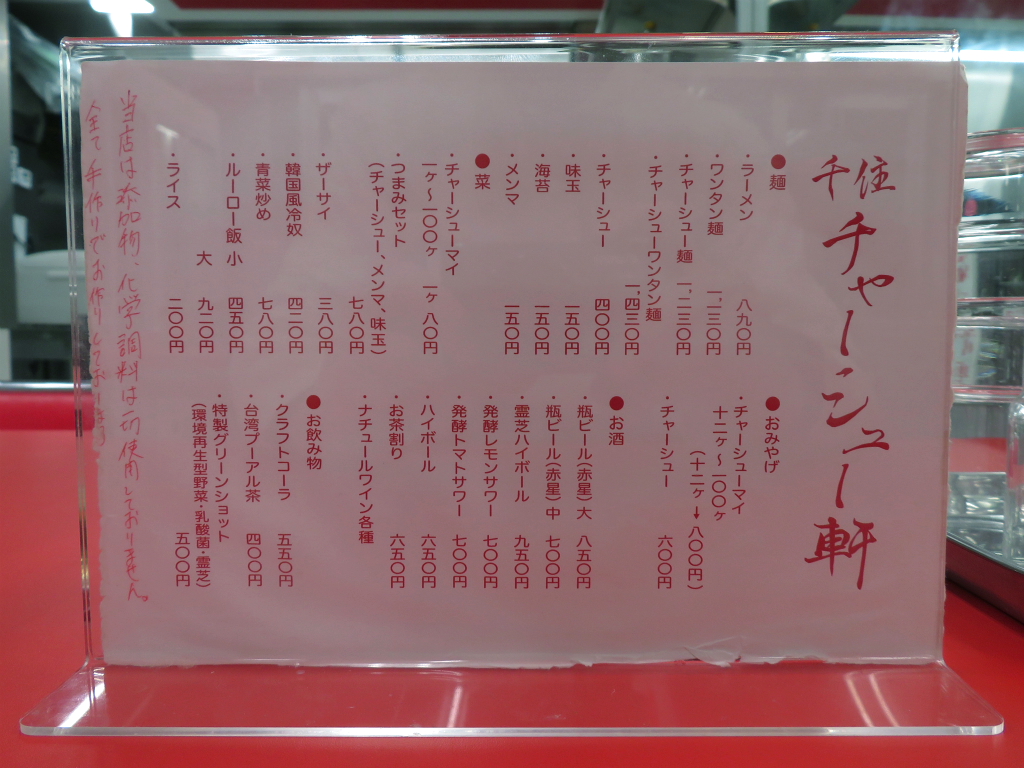 千住 チャーシュー軒
●麺
・ラーメン 八九〇円
・ワンタン麺 一、一三〇円
・チャーシュー麺 一、二三〇円
・チャーシューワンタン麺
一、四三〇円
・チャーシュー 四〇〇円
・味玉 一五〇円
・海苔 一五〇円
・メンマ 一五〇円
●菜
・チャーシューマイ
一ヶ〜一〇〇ヶ 一ヶ 八〇円
・つまみセット
(チャーシュー、メンマ、味玉)
七八〇円
・ザーサイ 三八〇円
・韓国風冷奴 四二〇円
・青菜炒め 七八〇円
・ルーロー飯 小 四五〇円
大 九二〇円
・ライス 二〇〇円
●おみやげ
・チャーシューマイ
十二ヶ〜一〇〇ヶ
(十二ヶ→八〇〇円)
・チャーシュー 六〇〇円
●お酒
・瓶ビール(赤星)大 八五〇円
・瓶ビール(赤星)中 七〇〇円
・霊芝ハイボール 九五〇円
・発酵レモンサワー 七〇〇円
・発酵トマトサワー 七〇〇円
・ハイボール 六五〇円
・お茶割り 六五〇円
・ナチュールワイン各種
●お飲み物
・クラフトコーラ 五五〇円
・台湾プーアル茶 四〇〇円
・特製グリーンショット
(環境再生型野菜・乳酸菌・霊芝)
五〇〇円
当店は添加物、化学調料は一切使用しておりません。
全て手作りでお作りしております